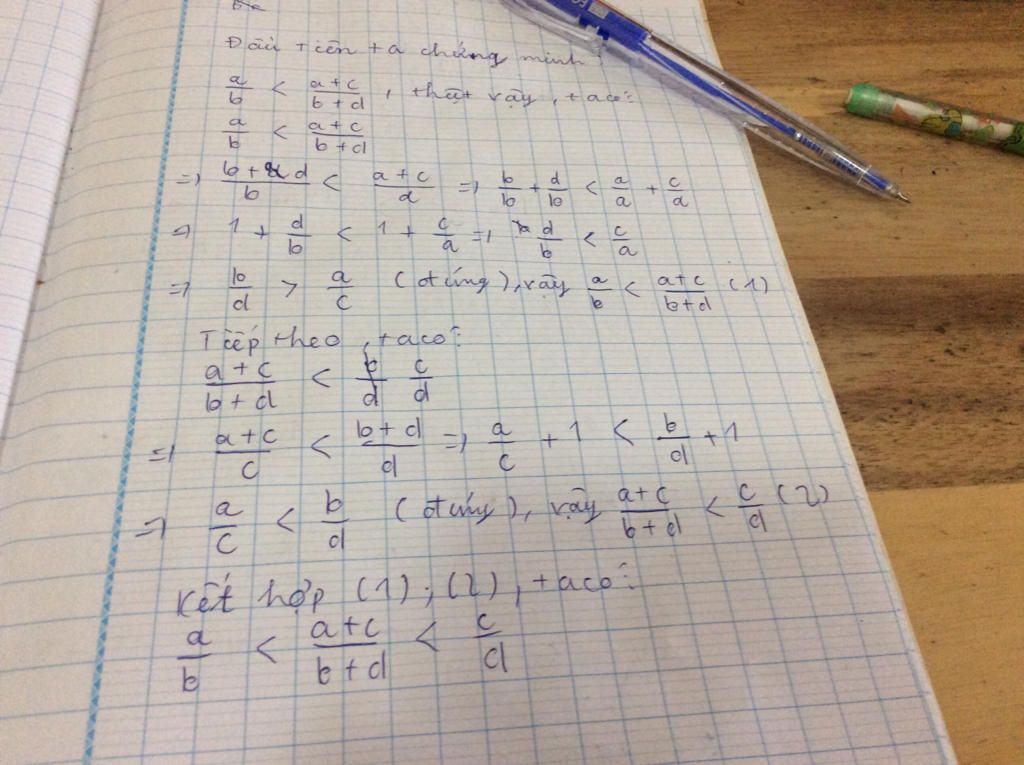 Đầu tiên ta chứng minh
a/b < (a+c)/(b+d), thật vậy, ta có:
a/b < (a+c)/(b+d)
=> (b+d)/b < (a+c)/a => b/b + d/b < a/a + c/a
=> 1 + d/b < 1 + c/a => d/b < c/a
=> b/d > a/c (đúng), vậy a/b < (a+c)/(b+d) (1)
Tiếp theo, ta có:
(a+c)/(b+d) < c/d
=> (a+c)/c < (b+d)/d => a/c + 1 < b/d + 1
=> a/c < b/d (đúng), vậy (a+c)/(b+d) < c/d (2)
Kết hợp (1), (2), ta có:
a/b < (a+c)/(b+d) < c/d